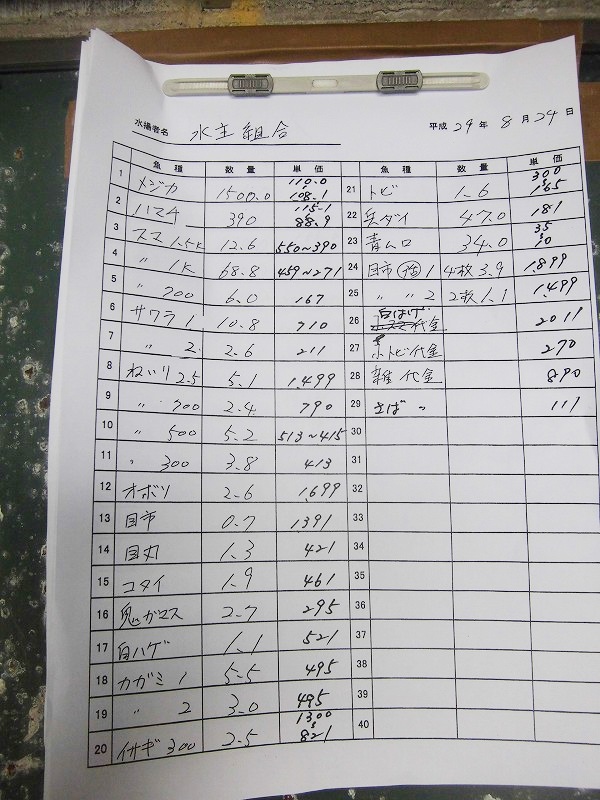 水揚者名 水主組合 平成 29年 8月 24日
魚種 数量 単価 魚種 数量 単価
1 メジカ 1500.0 110.0 〜 108.1
2 ハマチ 390 115.1 〜 88.9
3 スマ 1.5K 12.6 550~390
4 〃 1K 68.8 459~271
5 〃 700 6.0 167
6 サワラ 1 10.8 710
7 〃 2 2.6 211
8 ねいり 2.5 5.1 1,499
9 〃 700 2.4 790
10 〃 500 5.2 513~415
11 〃 300 3.8 413
12 オボソ 2.6 1,699
13 目市 0.7 1,391
14 目丸 1.3 421
15 コタイ 1.9 461
16 鬼ガマス 2.7 295
17 白ハゲ 1.1 521
18 カガミ 1 5.5 495
19 〃 2 3.0 495
20 イサギ 300 2.5 1300 〜 821
21 トビ 1.6 300 〜 165
22 兵ダイ 47.0 181
23 青ムロ 34.0 35 〜 10
24 目市 活 1 4枚 3.9 1,899
25 〃 〃 2 2枚 1.1 1,499
26 白はげ 代金 2011
27 小トビ代金 270
28 雑 代金 890
29 さば 〃 111
30
31
32
33
34
35
36
37
38
39
40